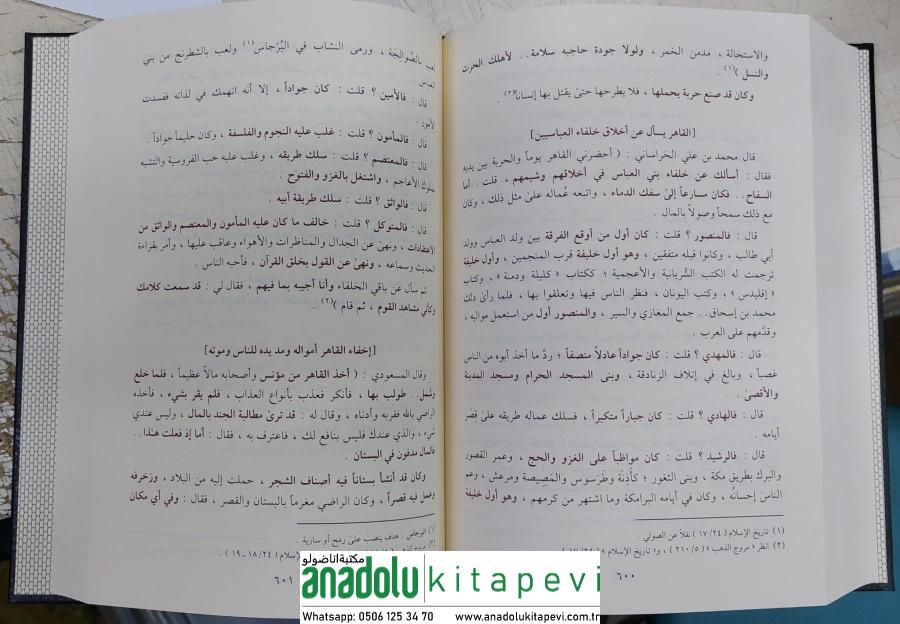 والاستحالة ، مدمن الخمر ، ولولا جودة حاجبه سلامة.. لأهلك الحرث
والنسل )(١) .
وكان قد صنع حربة يحملها ، فلا يطرحها حتىٰ يقتل بها إنساناً(٢) .
[القاهر يسأل عن أخلاق خلفاء العباسيين]
قال محمد بن علي الخراساني : ( أحضرني القاهر يوماً والحربة بين يديه
فقال : أسألك عن خلفاء بني العباس في أخلاقهم وشيمهم ، قلت : أما
السفاح.. فكان سارعاً إلىٰ سفك الدماء ، واتبعه عُماله علىٰ مثل ذلك ، وكان
مع ذلك سمحاً وصولاً بالمال .
قال : فالمنصور ؟ قلت : كان أول من أوقع الفرقة بين ولد العباس وولد
أبي طالب ، وكانوا قبله متفقين ، وهو أول خليفة قرب المنجمين ، وأول خليفة
ترجمت له الكتب السُّريانية والأعجمية ؛ ككتاب « كليلة ودمنة » ، وكتاب
« إقليدس » ، وكتب اليونان ، فنظر الناس فيها وتعلقوا بها ، فلما رأىٰ ذلك
محمد بن إسحاق.. جمع المغازي والسير ، والمنصور أول من استعمل مواليه ،
وقدَّمهم على العرب .
قال : فالمهدي ؟ قلت : كان جواداً عادلاً منصفاً ؛ ردَّ ما أخذ أبوه من الناس
غصباً ، وبالغ في إتلاف الزنادقة ، وبنى المسجد الحرام ومسجد المدينة
والأقصىٰ .
قال : فالهادي ؟ قلت : كان جباراً متكبراً ، فسلك عماله طريقه علىٰ قصر
أيامه .
قال : فالرشيد ؟ قلت : كان مواظباً على الغزو والحج ، وعمر القصور
والبرك بطريق مكة ، وبنى الثغور ؛ كأَذَنَة وطَرَسوس والمَصِيصة ومرعش ، وعم
الناسَ إحسانُه ، وكان في أيامه البرامكة وما اشتهر من كرمهم ، وهو أول خليفة
(١) تاريخ الإسلام ( ١٧/٢٤ ) نقلاً عن الصولي .
(٢) انظر « مروج الذهب » ( ٢١٠/٥ ) ، و« تاريخ الإسلام »
٦٠٠
لعب بالصَّوالجة ، ورمى النشاب في البُرْجاس(١) ولعب بالشطرنج من بني
العباس .
قال : فالأمين ؟ قلت : كان جواداً ، إلا أنه انهمك في لذاته ففسدت
الأمور .
قال : فالمأمون ؟ قلت : غلب عليه النجوم والفلسفة ، وكان حليماً جواداً .
قال : فالمعتصم ؟ قلت : سلك طريقه ، وغلب عليه حب الفروسية والتشبه
بملوك الأعاجم ، واشتغل بالغزو والفتوح .
قال : فالواثق ؟ قلت : سلك طريقة أبيه .
قال : فالمتوكل ؟ قلت : خالف ما كان عليه المأمون والمعتصم والواثق من
الاعتقادات ، ونهىٰ عن الجدال والمناظرات والأهواء وعاقب عليها ، وأمر بقراءة
الحديث وسماعه ، ونهىٰ عن القول بخلق القرآن ، فأحبه الناس .
ثم سأل عن باقي الخلفاء وأنا أجيبه بما فيهم ، فقال لي : قد سمعت كلامك
وكأني مشاهد القوم ، ثم قام )(٢) .
[إخفاء القاهر أمواله ومد يده للناس وموته]
وقال المسعودي : ( أخذ القاهر من مؤنس وأصحابه مالاً عظيماً ، فلما خلع
وسُمل.. طولب بها ، فأنكر فعذب بأنواع العذاب ، فلم يقر بشيء ، فأخذه
الراضي بالله فقربه وأدناه ، وقال له : قد ترىٰ مطالبة الجند بالمال ، وليس عندي
شيء ، والذي عندك فليس بنافع لك ، فاعترف به ، فقال : أما إذ فعلت هذا..
فالمال مدفون في البستان .
وكان قد أنشأ بستاناً فيه أصناف الشجر ، حملت إليه من البلاد ، وزخرفه
وعمل فيه قصراً ، وكان الراضي مغرماً بالبستان والقصر ، فقال : وفي أي مكان
(١) البرجاس : هدف ينصب علىٰ رمح أو سارية .
(٢) مروج
الإسلام ( ١٨/٢٤-١٩ ) .
٦٠١
مكتبة اناضولو
anadolu kitapevi
Whatsapp: 0506 125 34 70 www.anadolukitapevi.com.tr